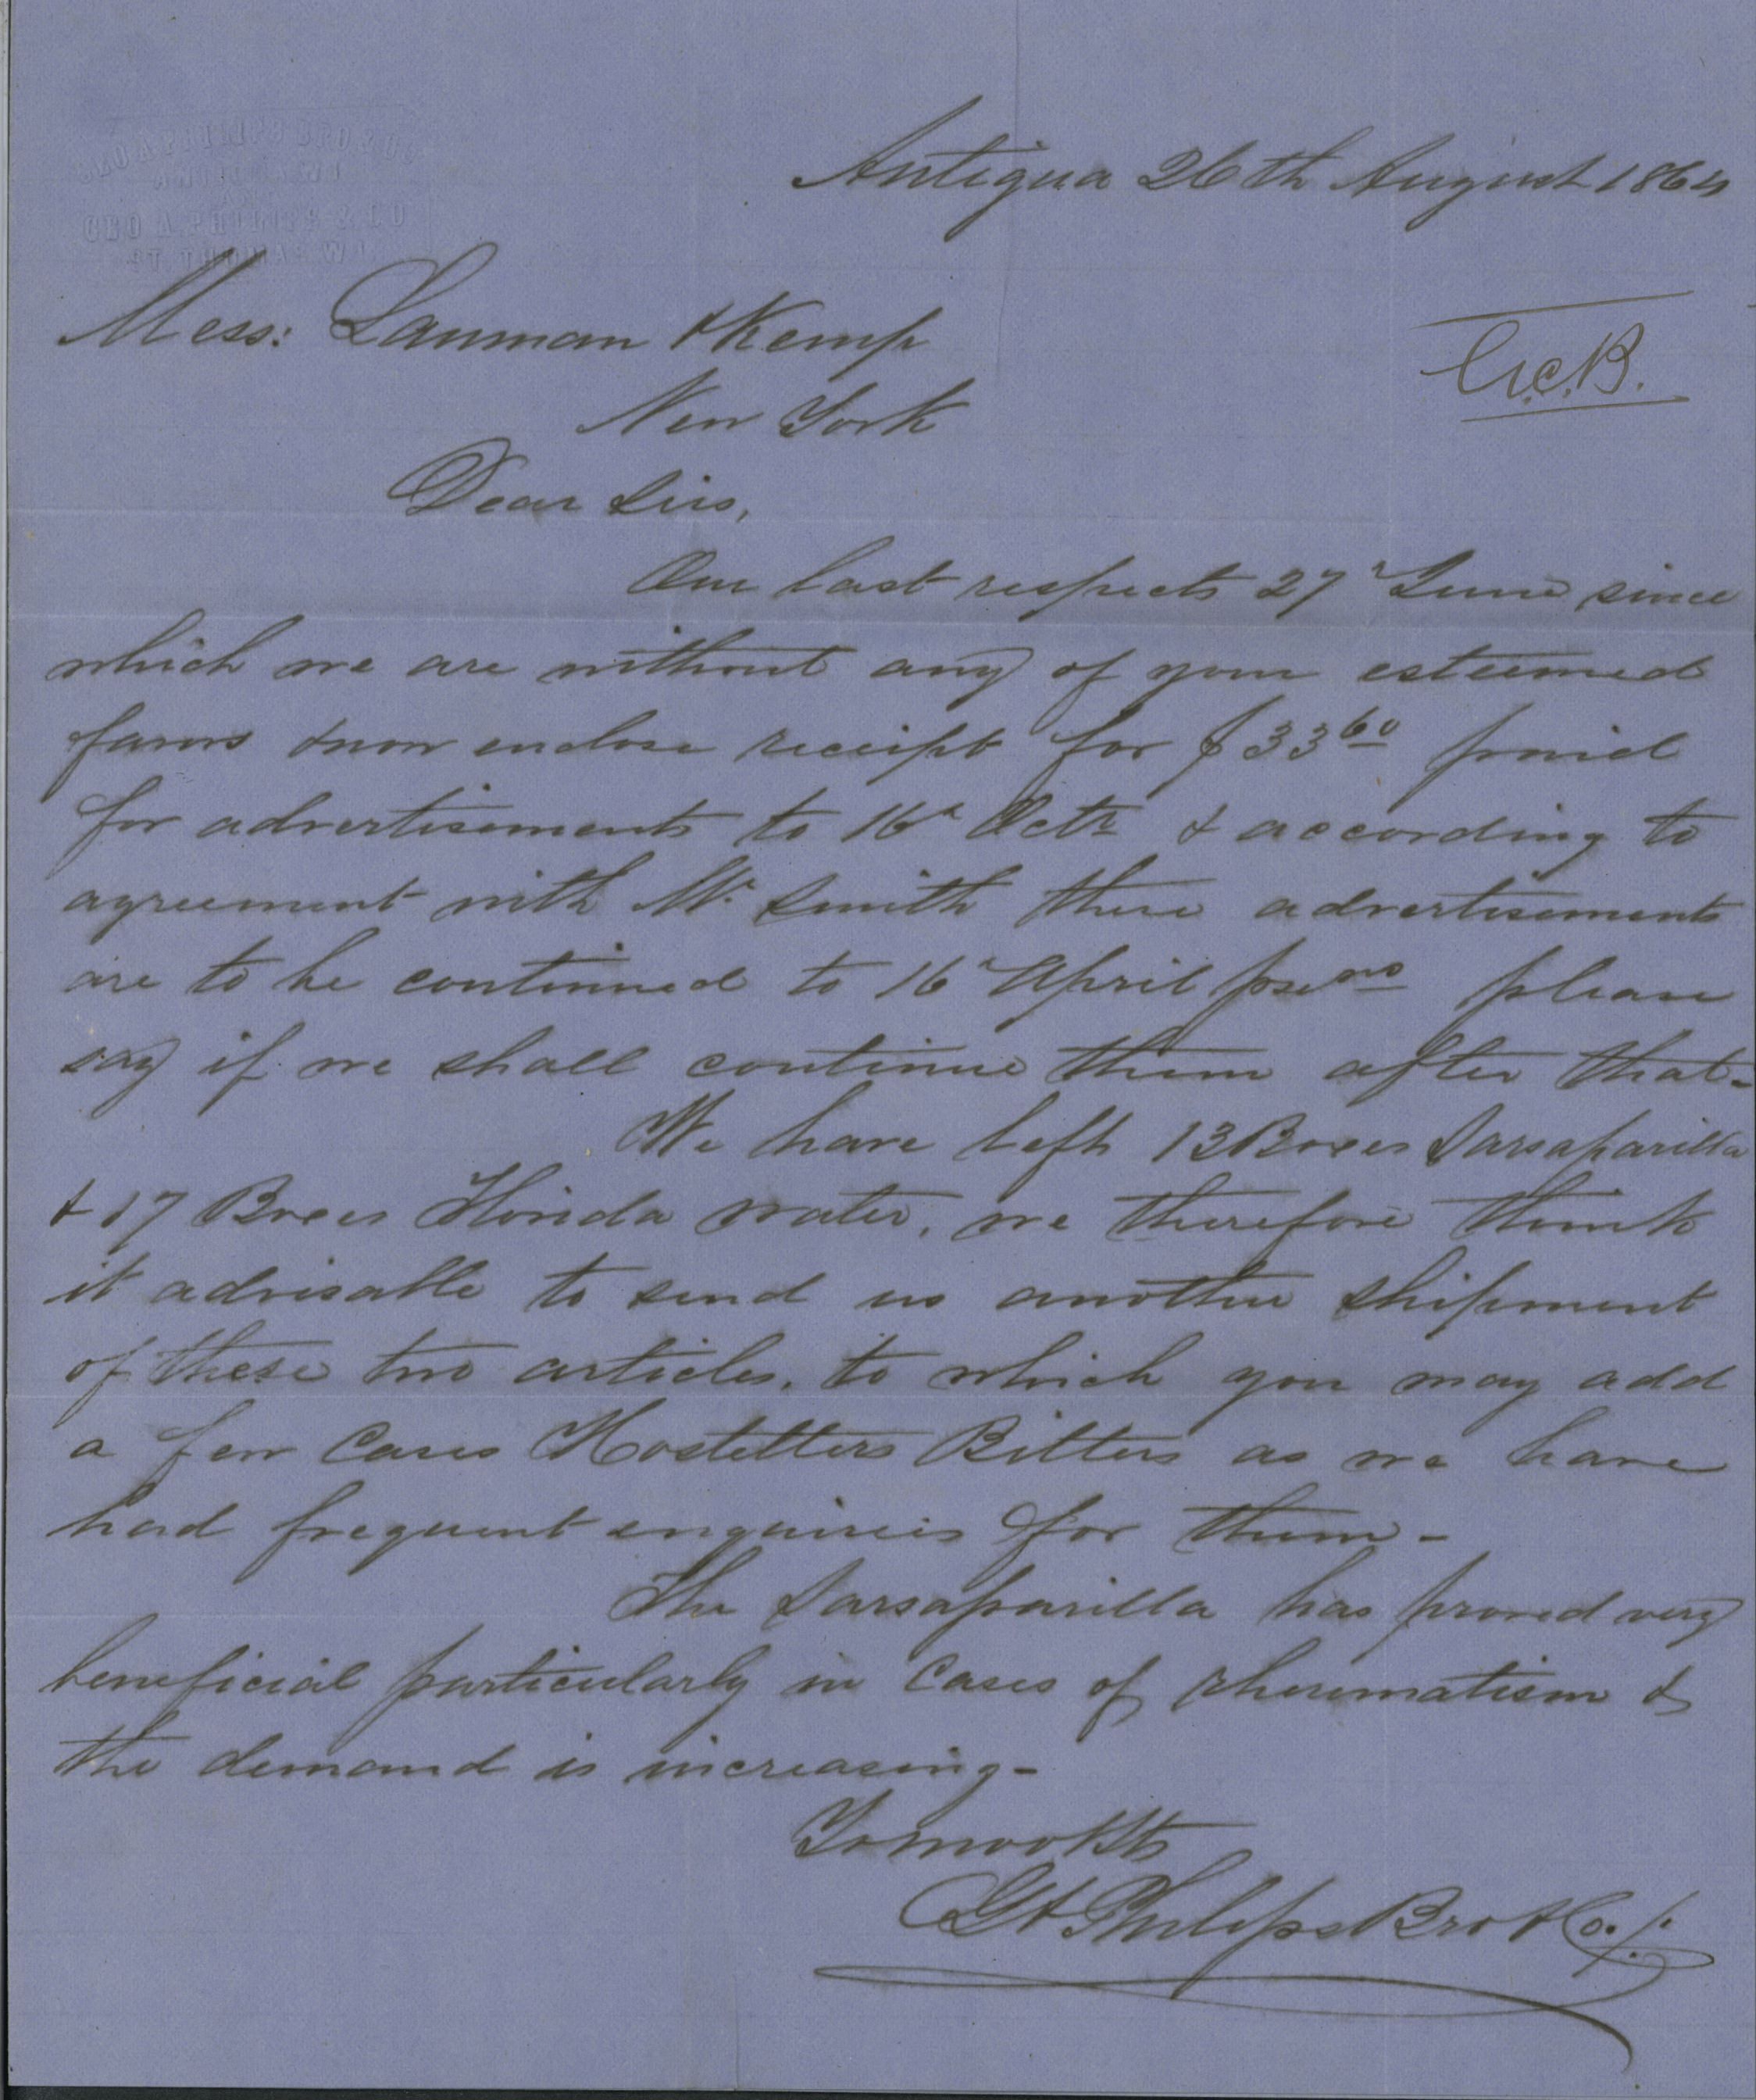 GEO A. PHILIPS BRO & CO
ANTIGUA W I
GEO A. PHILIPS & CO
ST. THOMAS W I
Antigua 26th August 1864
Mess: Lanman & Kemp
New York
Dear Sirs,
Our last respects 27" June since
which we are without any of your esteemed
favors & now enclose receipt for $33 60 paid
for advertisements to 16" Octr & according to
agreement with Mr Smith these advertisements
are to be continued to 16" April please
say if we shall continue them after that-
We have left 13 Boxes Sarsaparilla
& 17 Boxes Florida water, we therefore think
it advisable to send us another shipment
of these two articles, to which you may add
a few Cases Hostetters Bitters as we have
had frequent enquiries for them-
The Sarsaparilla has proved very
beneficial particularly in Cases of rheumatism &
the demand is increasing-
Yrs mo obt
GA Philips Bro & Co.